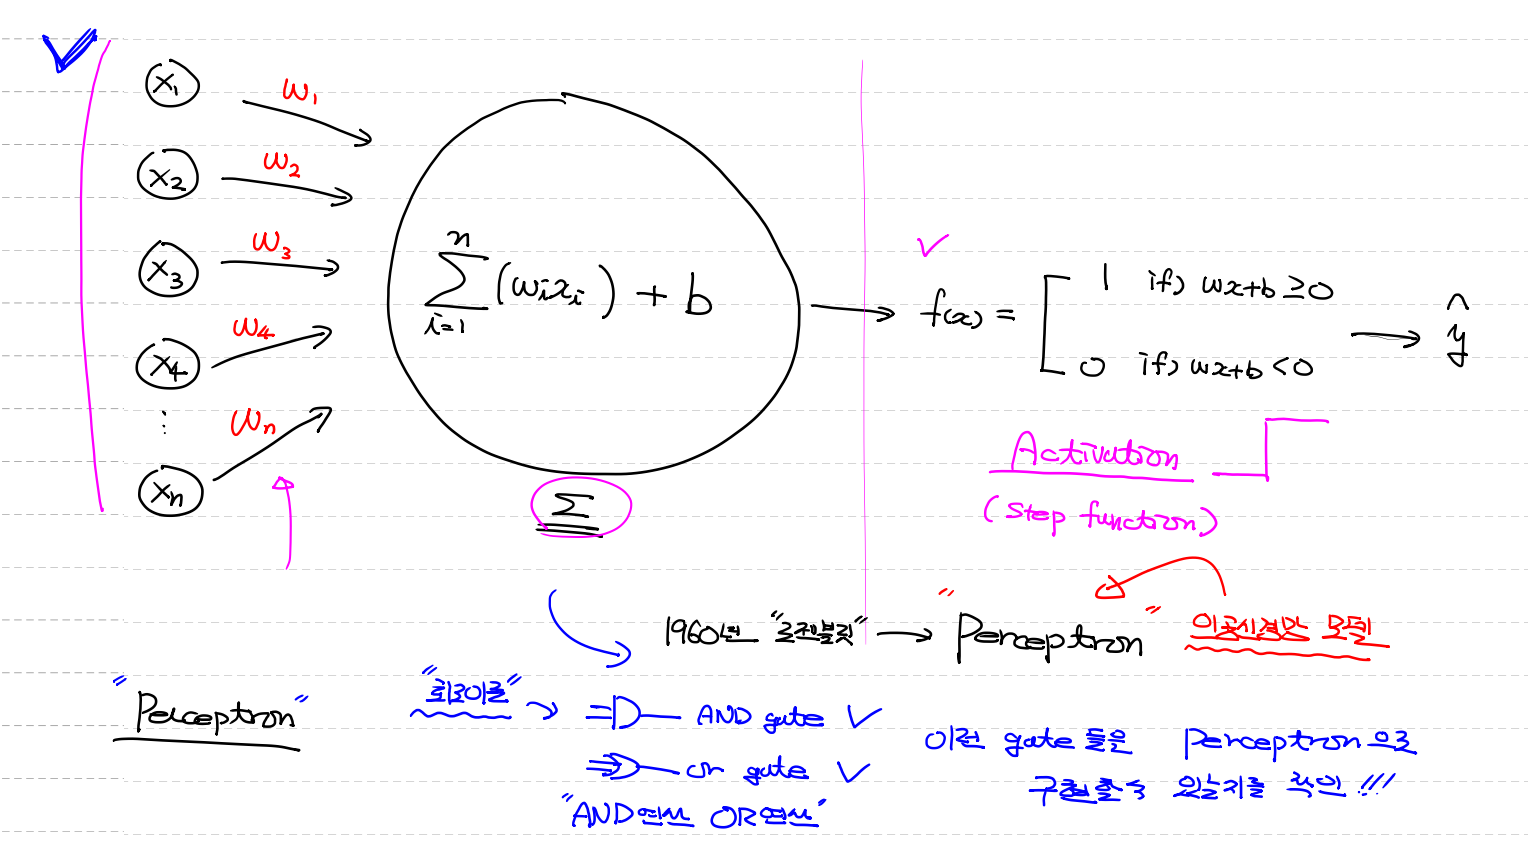 x₁ w₁
x₂ w₂
x₃ w₃
x₄ w₄
⋮
xₙ wₙ
n
∑ (wᵢxᵢ) + b
i=1
Σ
f(x) = [ 1 if) wx+b ≥ 0
0 if) wx+b < 0
ŷ
Activation
(step function)
1960년 "로젠블릿" → "Perceptron" 인공신경망 모델
"Perceptron"
"회로이론" → AND gate ✓
or gate ✓
"AND연산 OR연산"
이런 gate 들을 Perceptron으로
구현할수 있는지를 확인!!!